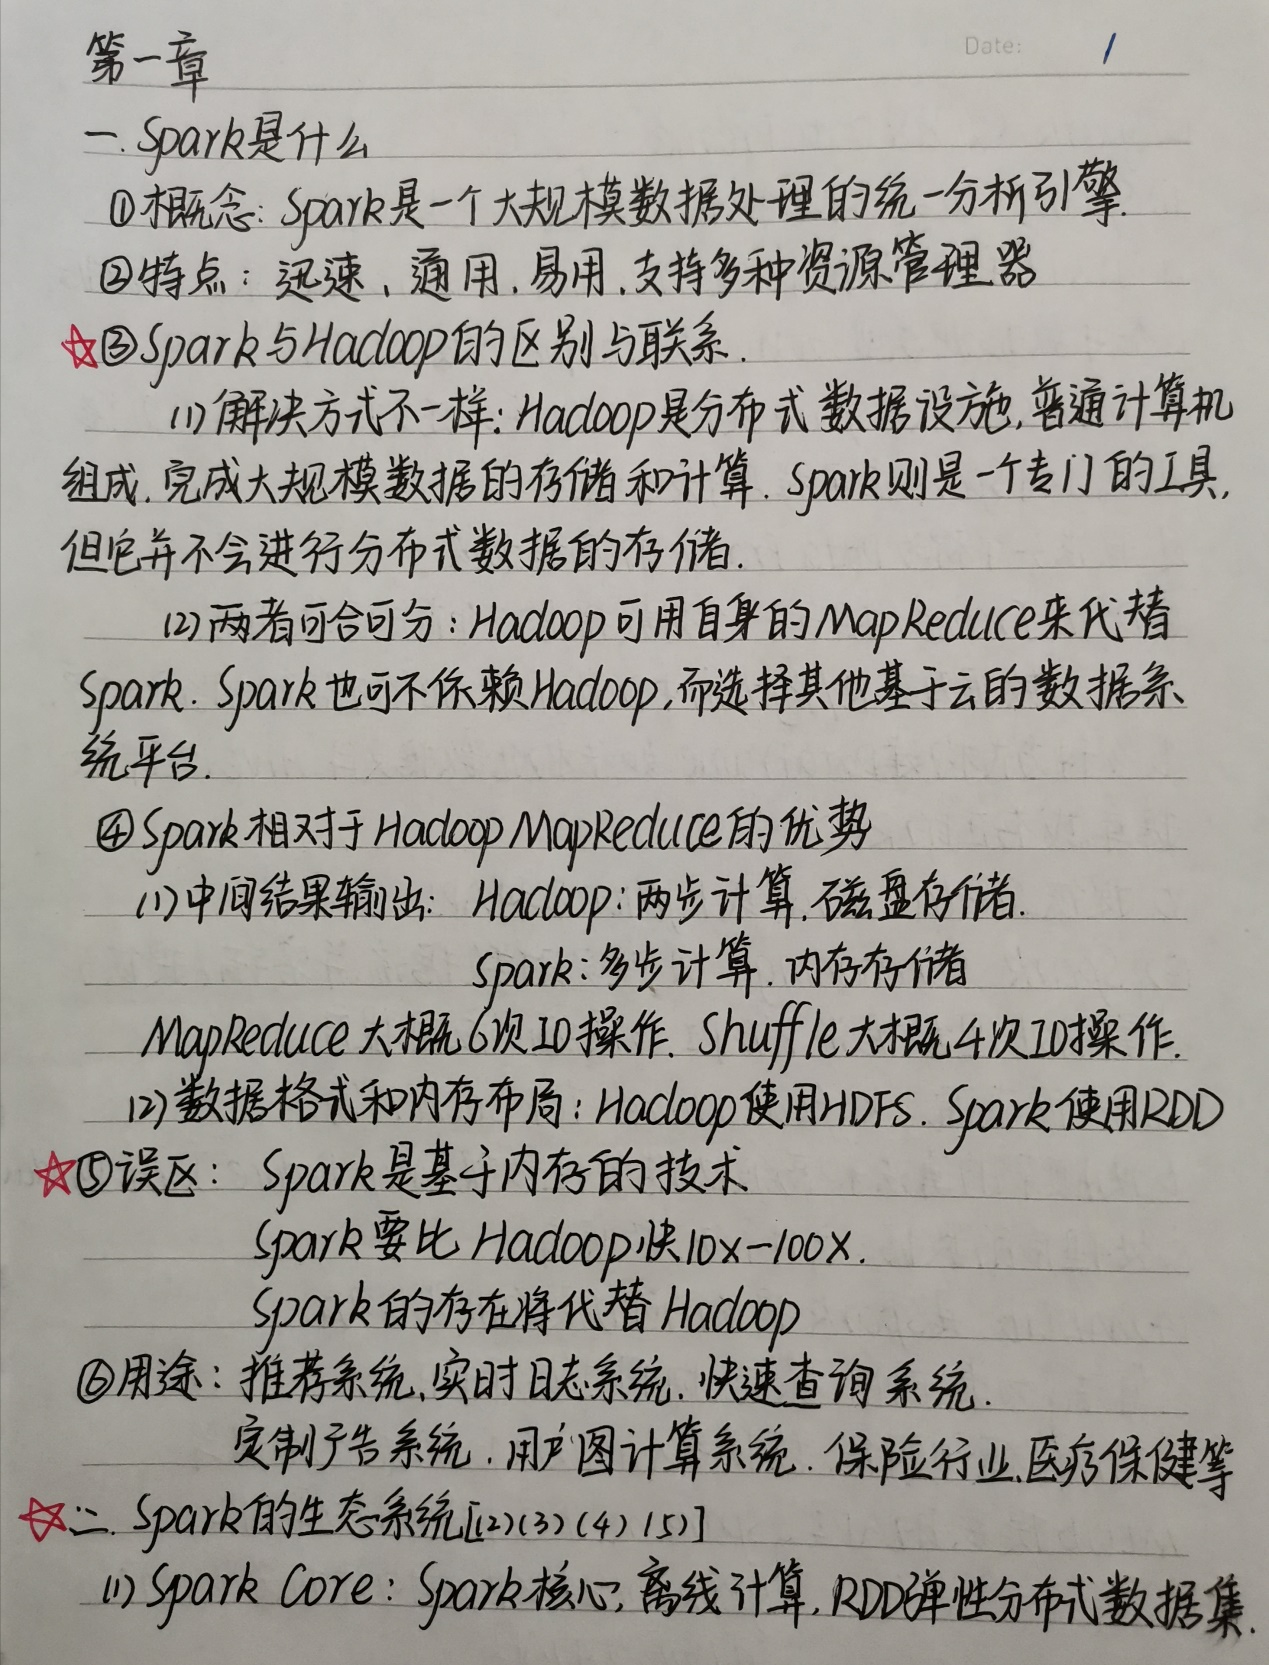 Date: 1
第一章
一. Spark是什么
①概念: Spark是一个大规模数据处理的统一分析引擎.
②特点: 迅速、通用、易用、支持多种资源管理器
☆③Spark与Hadoop的区别与联系.
(1)解决方式不一样: Hadoop是分布式数据设施, 普通计算机
组成, 完成大规模数据的存储和计算. Spark则是一个专门的工具,
但它并不会进行分布式数据的存储.
(2)两者可合可分: Hadoop可用自身的MapReduce来代替
Spark. Spark也可不依赖Hadoop, 而选择其他基于云的数据系
统平台.
④Spark相对于Hadoop MapReduce的优势
(1)中间结果输出: Hadoop: 两步计算, 磁盘存储.
Spark: 多步计算, 内存存储
MapReduce大概6次IO操作. Shuffle大概4次IO操作.
(2)数据格式和内存布局: Hadoop使用HDFS. Spark使用RDD
☆⑤误区: Spark是基于内存的技术
Spark要比Hadoop快10x-100x.
Spark的存在将代替Hadoop
⑥用途: 推荐系统、实时日志系统、快速查询系统.
定制广告系统、用户图计算系统. 保险行业、医疗保健等
☆二. Spark的生态系统[(2)(3)(4)(5)]
(1)Spark Core: Spark核心, 离线计算, RDD弹性分布式数据集.